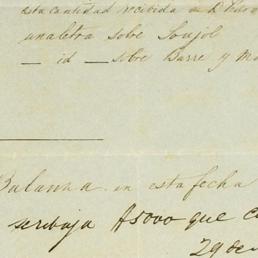 esta cantidad recibida de D. Pedro
una letra sobre Soujol
— id — sobre Barre y
Balanza en esta fecha
que
29 de